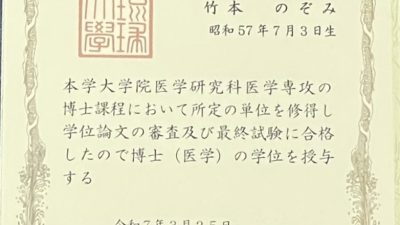 琉球
大學
竹本 のぞみ
昭和57年7月3日生
本学大学院医学研究科医学専攻の
博士課程において所定の単位を修得し
学位論文の審査及び最終試験に合格
したので博士（医学）の学位を授与
する
令和7年